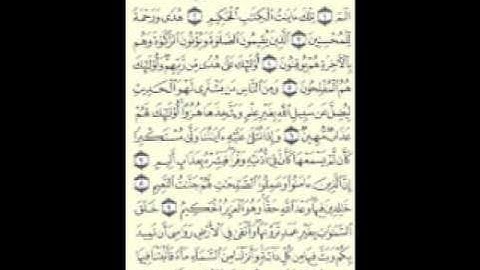 الٓمٓ ١ تِلْكَ ءَايَٰتُ ٱلْكِتَٰبِ ٱلْحَكِيمِ ٢ هُدًى وَرَحْمَةً
لِّلْمُحْسِنِينَ ٣ ٱلَّذِينَ يُقِيمُونَ ٱلصَّلَوٰةَ وَيُؤْتُونَ ٱلزَّكَوٰةَ وَهُم
بِٱلْءَاخِرَةِ هُمْ يُوقِنُونَ ٤ أُو۟لَٰٓئِكَ عَلَىٰ هُدًى مِّن رَّبِّهِمْ وَأُو۟لَٰٓئِكَ
هُمُ ٱلْمُفْلِحُونَ ٥ وَمِنَ ٱلنَّاسِ مَن يَشْتَرِى لَهْوَ ٱلْحَدِيثِ
لِيُضِلَّ عَن سَبِيلِ ٱللَّهِ بِغَيْرِ عِلْمٍ وَيَتَّخِذَهَا هُزُوًا أُو۟لَٰٓئِكَ لَهُمْ
عَذَابٌ مُّهِينٌ ٦ وَإِذَا تُتْلَىٰ عَلَيْهِ ءَايَٰتُنَا وَلَّىٰ مُسْتَكْبِرًا
كَأَن لَّمْ يَسْمَعْهَا كَأَنَّ فِىٓ أُذُنَيْهِ وَقْرًا فَبَشِّرْهُ بِعَذَابٍ أَلِيمٍ ٧
إِنَّ ٱلَّذِينَ ءَامَنُوا۟ وَعَمِلُوا۟ ٱلصَّٰلِحَٰتِ لَهُمْ جَنَّٰتُ ٱلنَّعِيمِ ٨
خَٰلِدِينَ فِيهَا وَعْدَ ٱللَّهِ حَقًّا وَهُوَ ٱلْعَزِيزُ ٱلْحَكِيمُ ٩ خَلَقَ
ٱلسَّمَٰوَٰتِ بِغَيْرِ عَمَدٍ تَرَوْنَهَا وَأَلْقَىٰ فِى ٱلْأَرْضِ رَوَٰسِىَ أَن تَمِيدَ
بِكُمْ وَبَثَّ فِيهَا مِن كُلِّ دَآبَّةٍ وَأَنزَلْنَا مِنَ ٱلسَّمَآءِ مَآءً فَأَنۢبَتْنَا فِيهَا